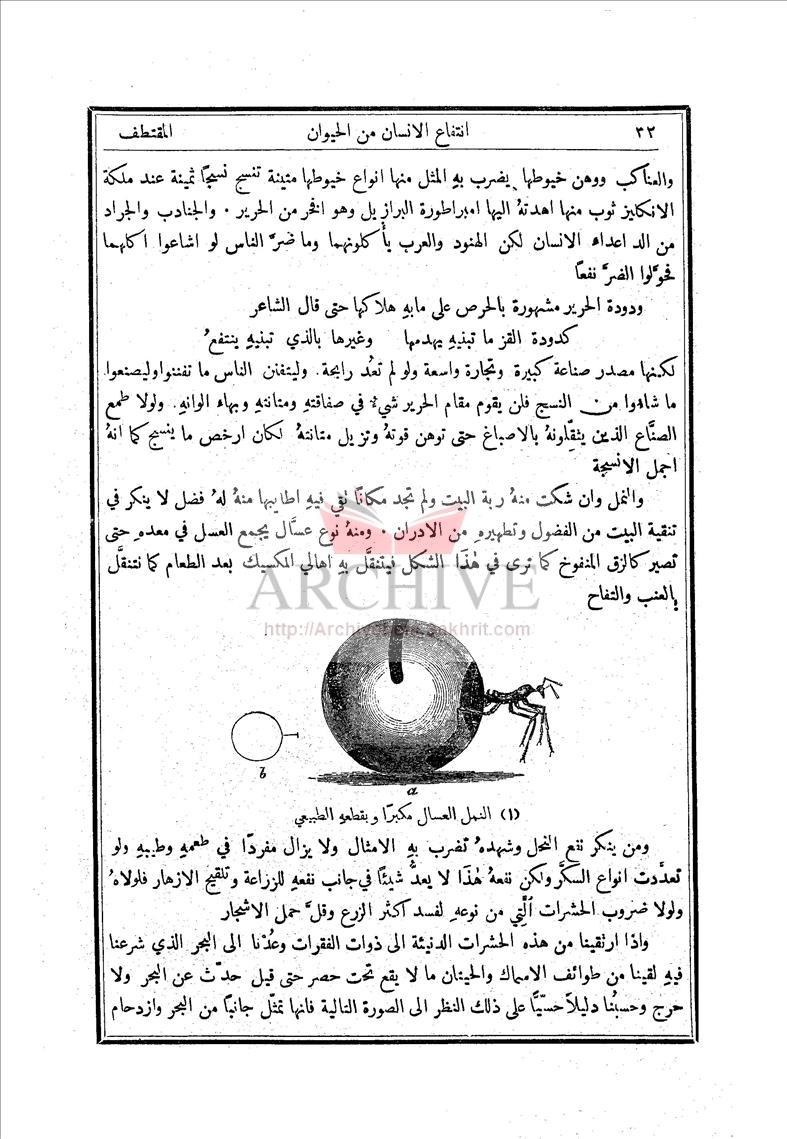 ٣٢ انتفاع الانسان من الحيوان المقتطف
والعناكب ووهن خيوطها يضرب بهِ المثل منها انواع خيوطها متينة تنسج نسيجاً ثمينة عند ملكة
الانكليز ثوب منها اهدتهُ اليها امبراطورة البرازيل وهو افخر من الحرير ٠ والجنادب والجراد
من الد اعداء الانسان لكن الهنود والعرب يأكلونهما وما ضرَّ الناس لو اشاعوا اكلهما
فحوَّلوا الضرَّ نفعاً
ودودة الحرير مشهورة بالحرص على مابهِ هلاكها حتى قال الشاعر
كدودة القز ما تبنيهِ يهدمها وغيرها بالذي تبنيهِ ينتفعُ
لكنها مصدر صناعة كبيرة وتجارة واسعة ولو لم تعُد رابحة. وليتفنن الناس ما تفننوا وليصنعوا
ما شاؤوا من النسج فلن يقوم مقام الحرير شيءٌ في صفاقتهِ ومتانتهِ وبهاء الوانهِ. ولولا طمع
الصنَّاع الذين يثقِّلونهُ بالاصباغ حتى توهن قوتهُ وتزيل متانتهُ لكان ارخص ما ينسج كما انهُ
اجمل الانسجة
والنمل وان شكت منهُ ربة البيت ولم تجد مكاناً تقي فيهِ اطايبها منهُ لهُ فضل لا ينكر في
تنقية البيت من الفضول وتطهيرهِ من الادران ٠ ومنهُ نوع عسَّال يجمع العسل في معدهِ حتى
تصير كالزق المنفوخ كما ترى في هٰذَا الشكل فيتنقَّل بهِ اهالي المكسيك بعد الطعام كما نتنقَّل
بالعنب والتفاح
ARCHIVE
http://Archivebeta.Sakhrit.com
b
a
(١) النمل العسال مكبرًا وبقطعهِ الطبيعي
ومن ينكر نفع النحل وشهدهُ تضرب بهِ الامثال ولا يزال مفردًا في طعمهِ وطيبهِ ولو
تعدَّدت انواع السكَّر ولكن نفعهُ هٰذَا لا يعدُّ شيئًا في جانب نفعهِ للزراعة وتلقيح الازهار فلولاهُ
ولولا ضروب الحشرات التَّي من نوعهِ لفسد اكثر الزرع وقلَّ حمل الاشجار
واذا ارتقينا من هذه الحشرات الدنيئة الى ذوات الفقرات وعُدْنا الى البحر الذي شرعنا
فيهِ لقينا من طوائف الاسماك والحيتان ما لا يقع تحت حصر حتى قيل حدّث عن البحر ولا
حرج وحسبُنا دليلاً حسّيًّا على ذلك النظر الى الصورة التالية فانها تمثّل جانبًا من البحر وازدحام